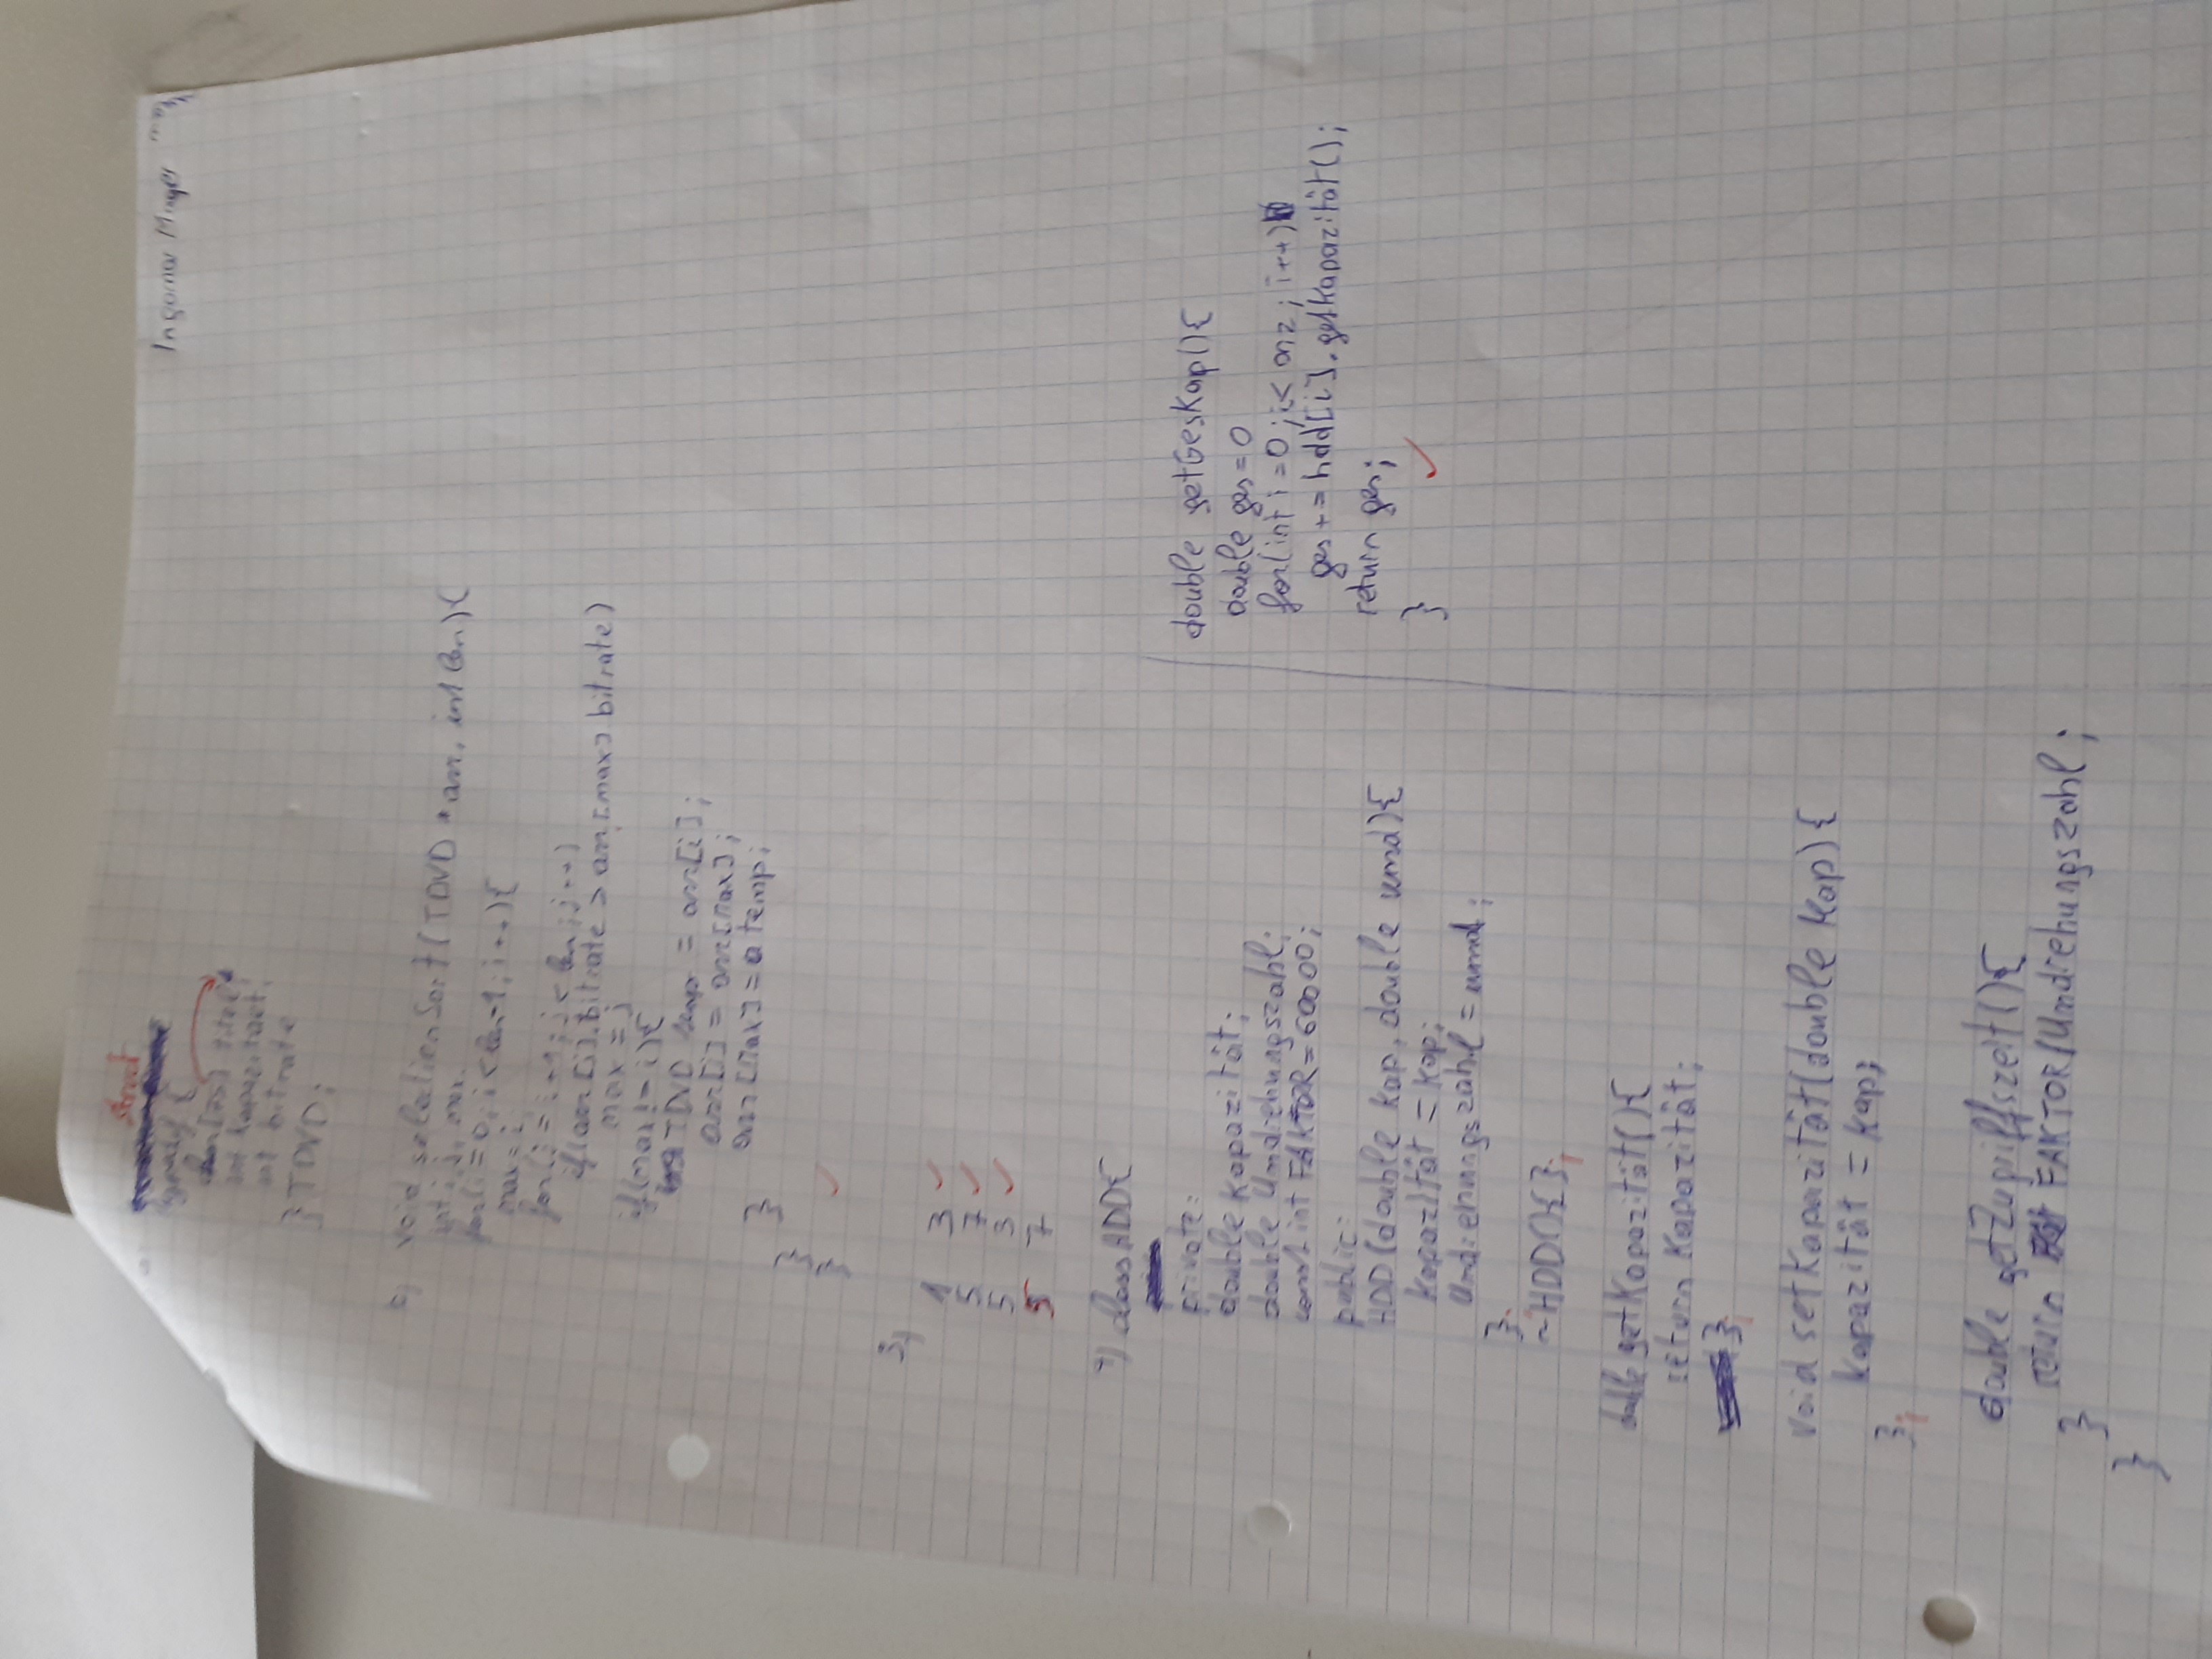 Ingomar Mager
struct
typedef {
char[75] titel;
int kapazitaet;
int bitrate
} TDVD;
void selectionSort(TDVD *arr, int len){
int i, j, max;
for(i=0; i<len-1; i++){
max=i;
for(j=i+1; j<len; j++)
if(arr[j].bitrate > arr[max].bitrate)
max = j
if(max != i){
TDVD temp = arr[i];
arr[i] = arr[max];
arr[max] = temp;
}
}
}
3)
3
5 7
5 3
5 7
class HDD{
private:
double kapazität;
double Umdrehungszahl;
const int FAKTOR=60000;
public:
HDD(double kap, double umd){
kapazität = kap;
Umdrehungszahl = umd;
};
~HDD(){};
double getKapazität(){
return Kapazität;
};
void setKapazität(double kap){
kapazität = kap;
};
double getZugriffszeit(){
return FAKTOR/Umdrehungszahl;
}
}
double getGesKap(){
double ges=0
for(int i=0; i< anz; i++)
ges += hdd[i].getKapazität();
return ges;
}